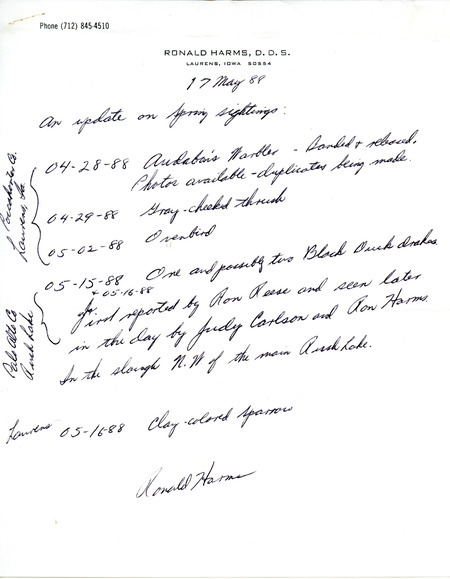 Phone (712) 845-4510
RONALD HARMS, D. D. S.
LAURENS, IOWA 50554
17 May 88
An update on Spring sightings:
Pocahontas Co.
Laurens, Ia.
04-28-88 Audubon's Warbler - Banded & released,
Photos available - duplicates being made.
04-29-88 Gray-cheeked thrush
05-02-88 Ovenbird
Palo Alto Co
Rush Lake
05-15-88 One and possibly two Black Duck drakes
+ 05-16-88
First reported by Ron Reese and seen later
in the day by Judy Carlson and Ron Harms.
In the slough N.W of the main Rush Lake.
Laurens 05-16-88 Clay-colored Sparrow
Ronald Harms